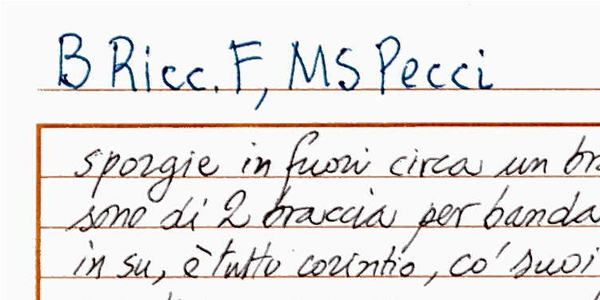 B Ricc. F, MS Pecci
sporgie in fuori circa un br
sono di 2 braccia per banda
in su, è tutto corintio, co' suoi